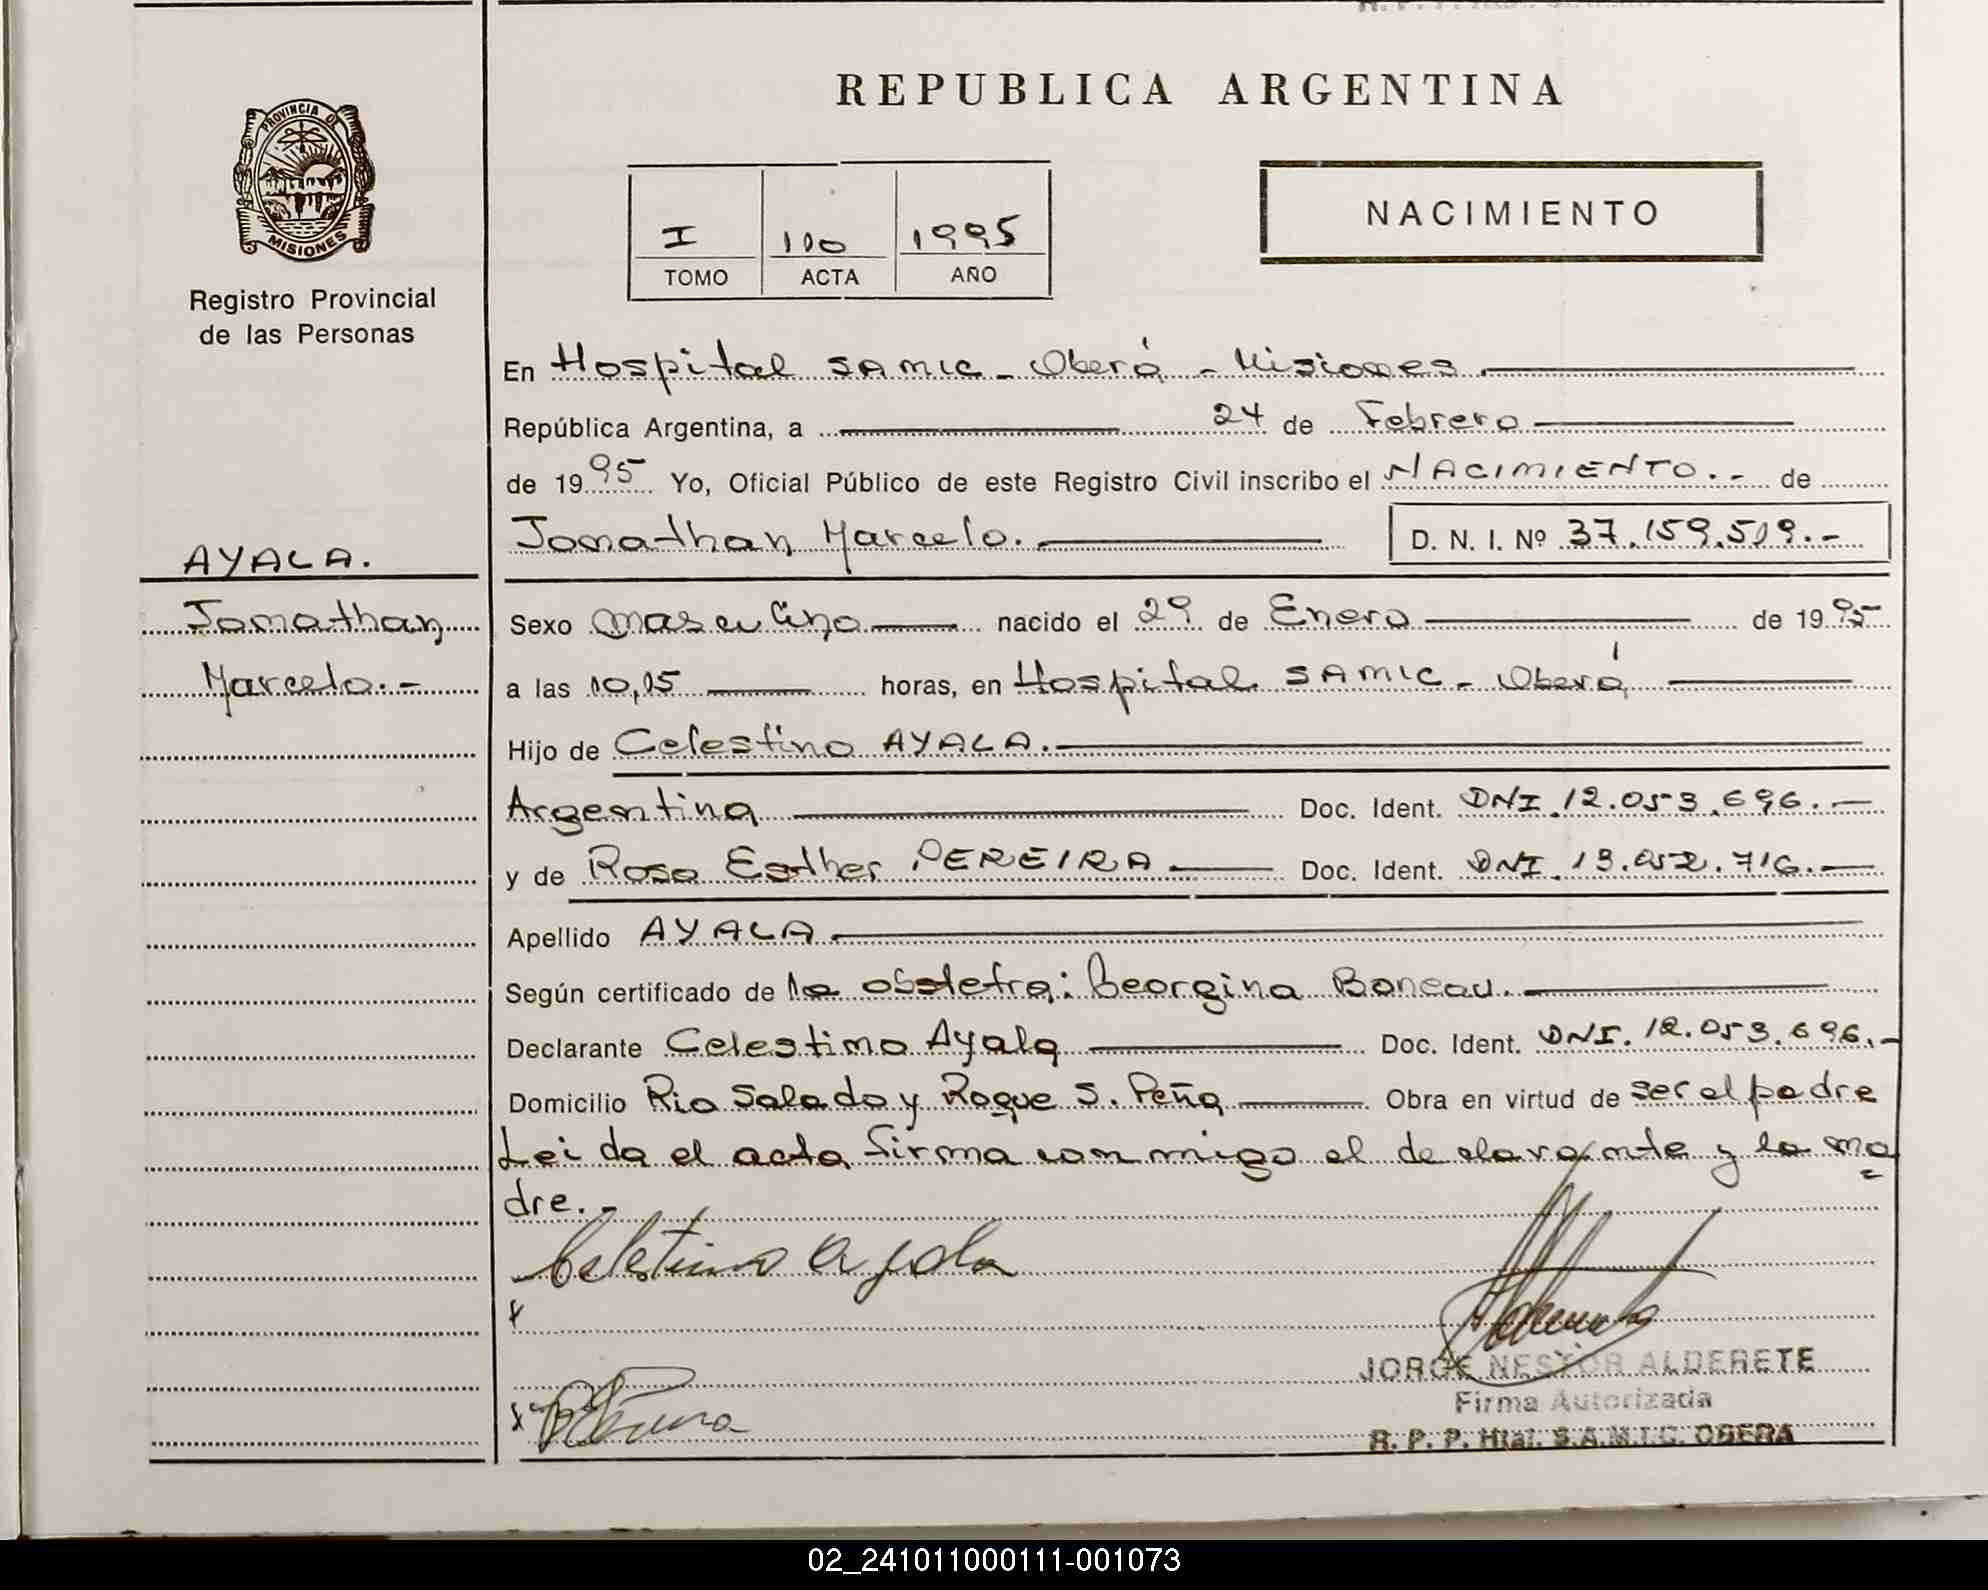 REPUBLICA ARGENTINA
PROVINCIA DE
MISIONES
Registro Provincial
de las Personas
I 110 1995
TOMO ACTA AÑO
NACIMIENTO
En Hospital SAMIC - Oberá - Misiones.
República Argentina, a 24 de Febrero
de 1995 Yo, Oficial Público de este Registro Civil inscribo el NACIMIENTO.- de
Jonathan Marcelo. D. N. I. Nº 37.159.519.-
AYALA.
Jonathan
Marcelo.-
Sexo Masculino nacido el 29 de Enero de 1995
a las 10,15 horas, en Hospital SAMIC - Oberá
Hijo de Celestino AYALA.
Argentina Doc. Ident. DNI. 12.053.696.-
y de Rosa Esther PEREIRA Doc. Ident. DNI. 13.052.716.-
Apellido AYALA
Según certificado de la obstetra: Georgina Boneau.
Declarante Celestino Ayala Doc. Ident. DNI. 12.053.696.-
Domicilio Rio Salado y Roque S. Peña Obra en virtud de ser el padre
Leida el acta firma conmigo el declarante y la ma=
dre.-
Celestino Ayala
x
x
JORGE NESTOR ALDERETE
Firma Autorizada
R. P. P. Htal. S.A.M.I.C. OBERA
02_241011000111-001073